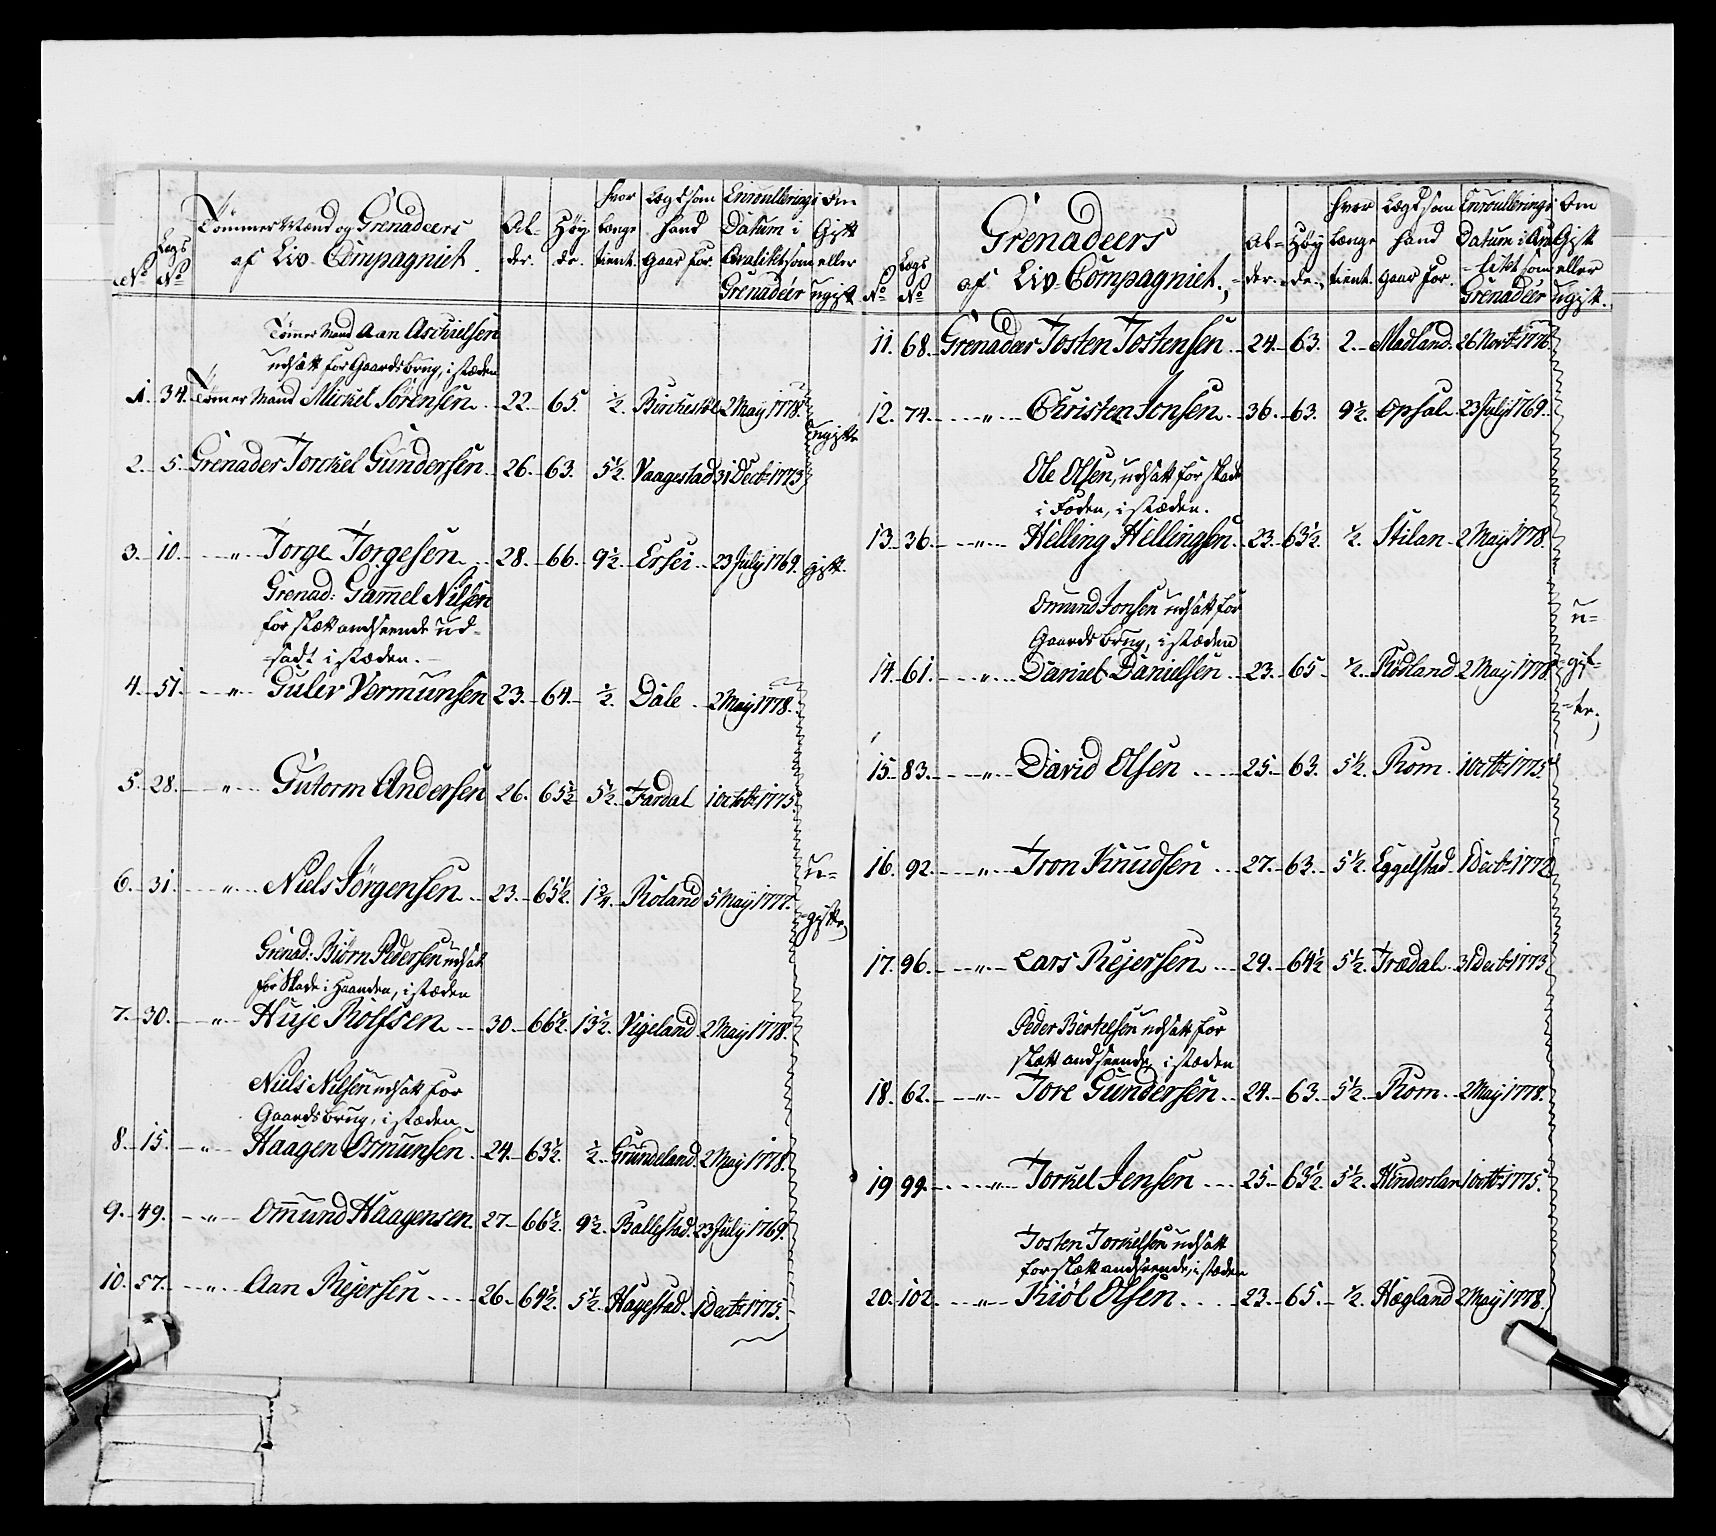 No
Lægs No
Tømmer Mænd og Grenadeers
af Liv Compagniet.
Al-
der.
Høy
de.
hvor
længe
tient.
Lægd som
hand
gaar for.
Enroullerings
Datum i
Qvalitet som
Grenadeer
Om
Gift
eller
ugift
Tømmer Mand Aan Aschielsen
udsatt for Gaardsbrug, i stæden
1. 34. Tømer Mand Mickel Sørensen. 22. 65. ½. Birchestøl 2 May 1778.
ugifte
2. 5. Grenader Torckel Gundersen. 26. 63. 5½. Vaagestad 31 Decb: 1773
3. 10. " Torge Torgesen. 28. 66. 9½ Ersei 23 July 1769. gift.
Grenad: Gammel Nilsen
for slætt andseende ud-
-sadt i stæden.
4. 51. " Guler Vermunsen 23. 64. ½. Dale 2 May 1778.
5. 28. " Gutorm Andersen 26. 65½ 5½. Fardal 1 Octob: 1775.
6. 31. " Niels Jørgensen. 23. 65½. 1¾. Roland 5 May 1777.
u-
-gifte,
Grenad: Biørn Pedersen udsatt
for Skade i Haanden, i stæden
7. 30. " Huje Rolfsen 30. 66½. 13½. Vigeland 2 May 1778.
Niels Nilsen udsatt for
Gaardsbrug, i stæden
8. 15. " Haagen Osmunsen. 24. 63½. ½. Grundeland. 2 May 1778.
9. 49. " Omund Haagensen. 27. 66½. 9½. Ballestad. 23 July 1769.
10. 57. " Aan Rejersen 26. 64½. 5½. Hagestad. 1 Decb: 1775.
No
Lægs No
Grenadeers
af Liv Compagniet.
Al-
der.
Høy
de.
hvor
længe
tient.
Lægd som
hand
gaar for.
Enroullerings
Datum i Qva
-litet som
Grenadeer
Om
Gift
eller
ugift.
11. 68. Grenadeer Tosten Tostensen 24. 63. 2. Madland. 26 Novb: 1776
12. 74. " Christen Jonsen. 36. 63. 9½ Opsal. 23 July 1769.
Ole Olsen, udsatt for skade
i Foden, i stæden.
13. 36. " Helling Hellingsen. 23. 63½ ½ Stilan 2 May 1778.
Omund Jonsen udsatt for
Gaardsbrug, i stæden
14. 61. " Daniel Danielsen 23. 65. ½. Rødland 2 May 1778
u-
-gif-
-te,
15. 83. " David Olsen 25. 63. 5½. Rom. 1 Octb: 1775
16. 92. " Tron Knudsen 27. 63. 5½. Eggelstad 1 Decb: 1772
17. 96. " Lars Rejersen 29. 64½ 5½. Trædal. 31 Decb: 1773
Peder Bertelsen udsatt for
slætt andseende, i stæden
18. 62. " Tore Gundersen 24. 63. 5½. Rom. 2 May 1778.
19 99. " Torkel Jensen 25. 63½. 5½. Hinderslan 1 Octb: 1775.
Tosten Torkelsen udsatt
for slætt andseende, i stæden
20. 102. " Kiøl Olsen. 23. 65. ½. Hægland 2 May 1778.